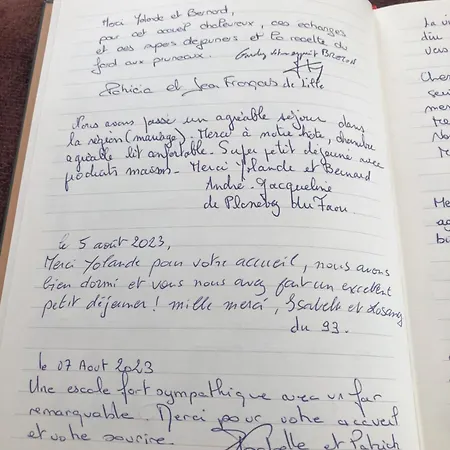 Merci Yolande et Bernard,
pour cet accueil chaleureux, ces échanges
et ces supers déjeuners et la recette du
fard aux pruneaux.
Patricia et Jean François de Lille
Nous avons passé un agréable séjour dans
la région (mariage). Merci à notre hôte, chambre
agréable lit confortable. Super petit déjeuné avec
produits maisons. Merci Yolande et Bernard
André. Jacqueline
de du Faou.
le 5 août 2023,
Merci Yolande pour votre accueil, nous avons
bien dormi et vous nous avez fait un excellent
petit déjeuner ! mille merci, Isabelle et
du 93.
le 07 Aout 2023
Une escale fort sympathique avec un far
remarquable. Merci pour votre accueil
et votre sourire. et Patrick
La
Cher